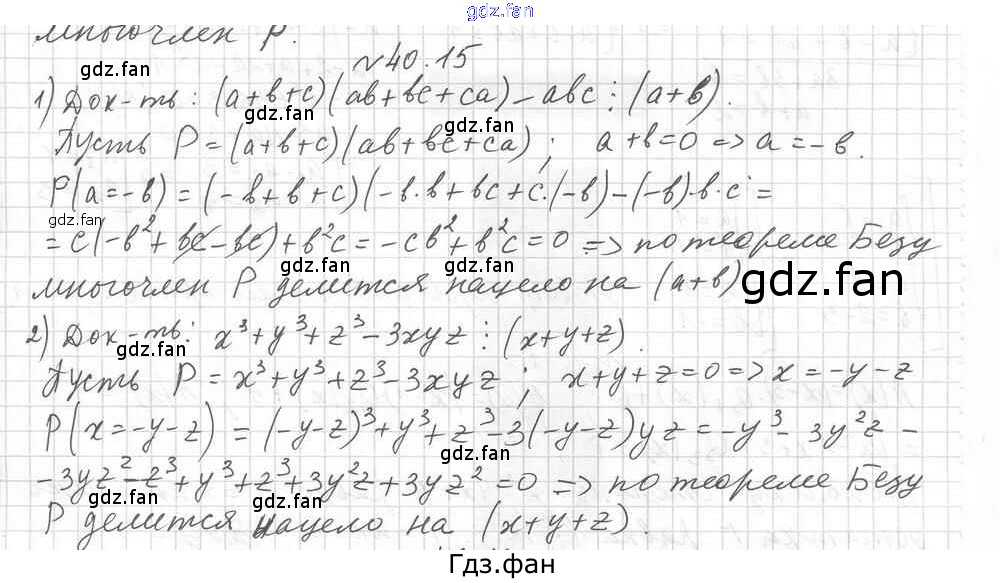 gdz.fan
многочлен P.
№40.15
gdz.fan
1) Док-ть: (a+b+c)(ab+bc+ca)-abc⋮(a+b).
gdz.fan gdz.fan
Пусть P=(a+b+c)(ab+bc+ca); a+b=0=>a=-b.
P(a=-b)=(-b+b+c)(-b·b+bc+c·(-b)-(-b)·b·c=
gdz.fan gdz.fan
=c(-b²+bc-bc)+b²c=-cb²+b²c=0=>по теореме Безу
gdz.fan
многочлен P делится нацело на (a+b)
gdz.fan
2) Док-ть: x³+y³+z³-3xyz⋮(x+y+z).
gdz.fan gdz.fan
Пусть P=x³+y³+z³-3xyz; x+y+z=0=>x=-y-z
P(x=-y-z)=(-y-z)³+y³+z³-3(-y-z)yz=-y³-3y²z-
gdz.fan gdz.fan
-3yz²-z³+y³+z³+3y²z+3yz²=0=>по теореме Безу
gdz.fan gdz.fan
P делится нацело на (x+y+z).
Гдз.фан